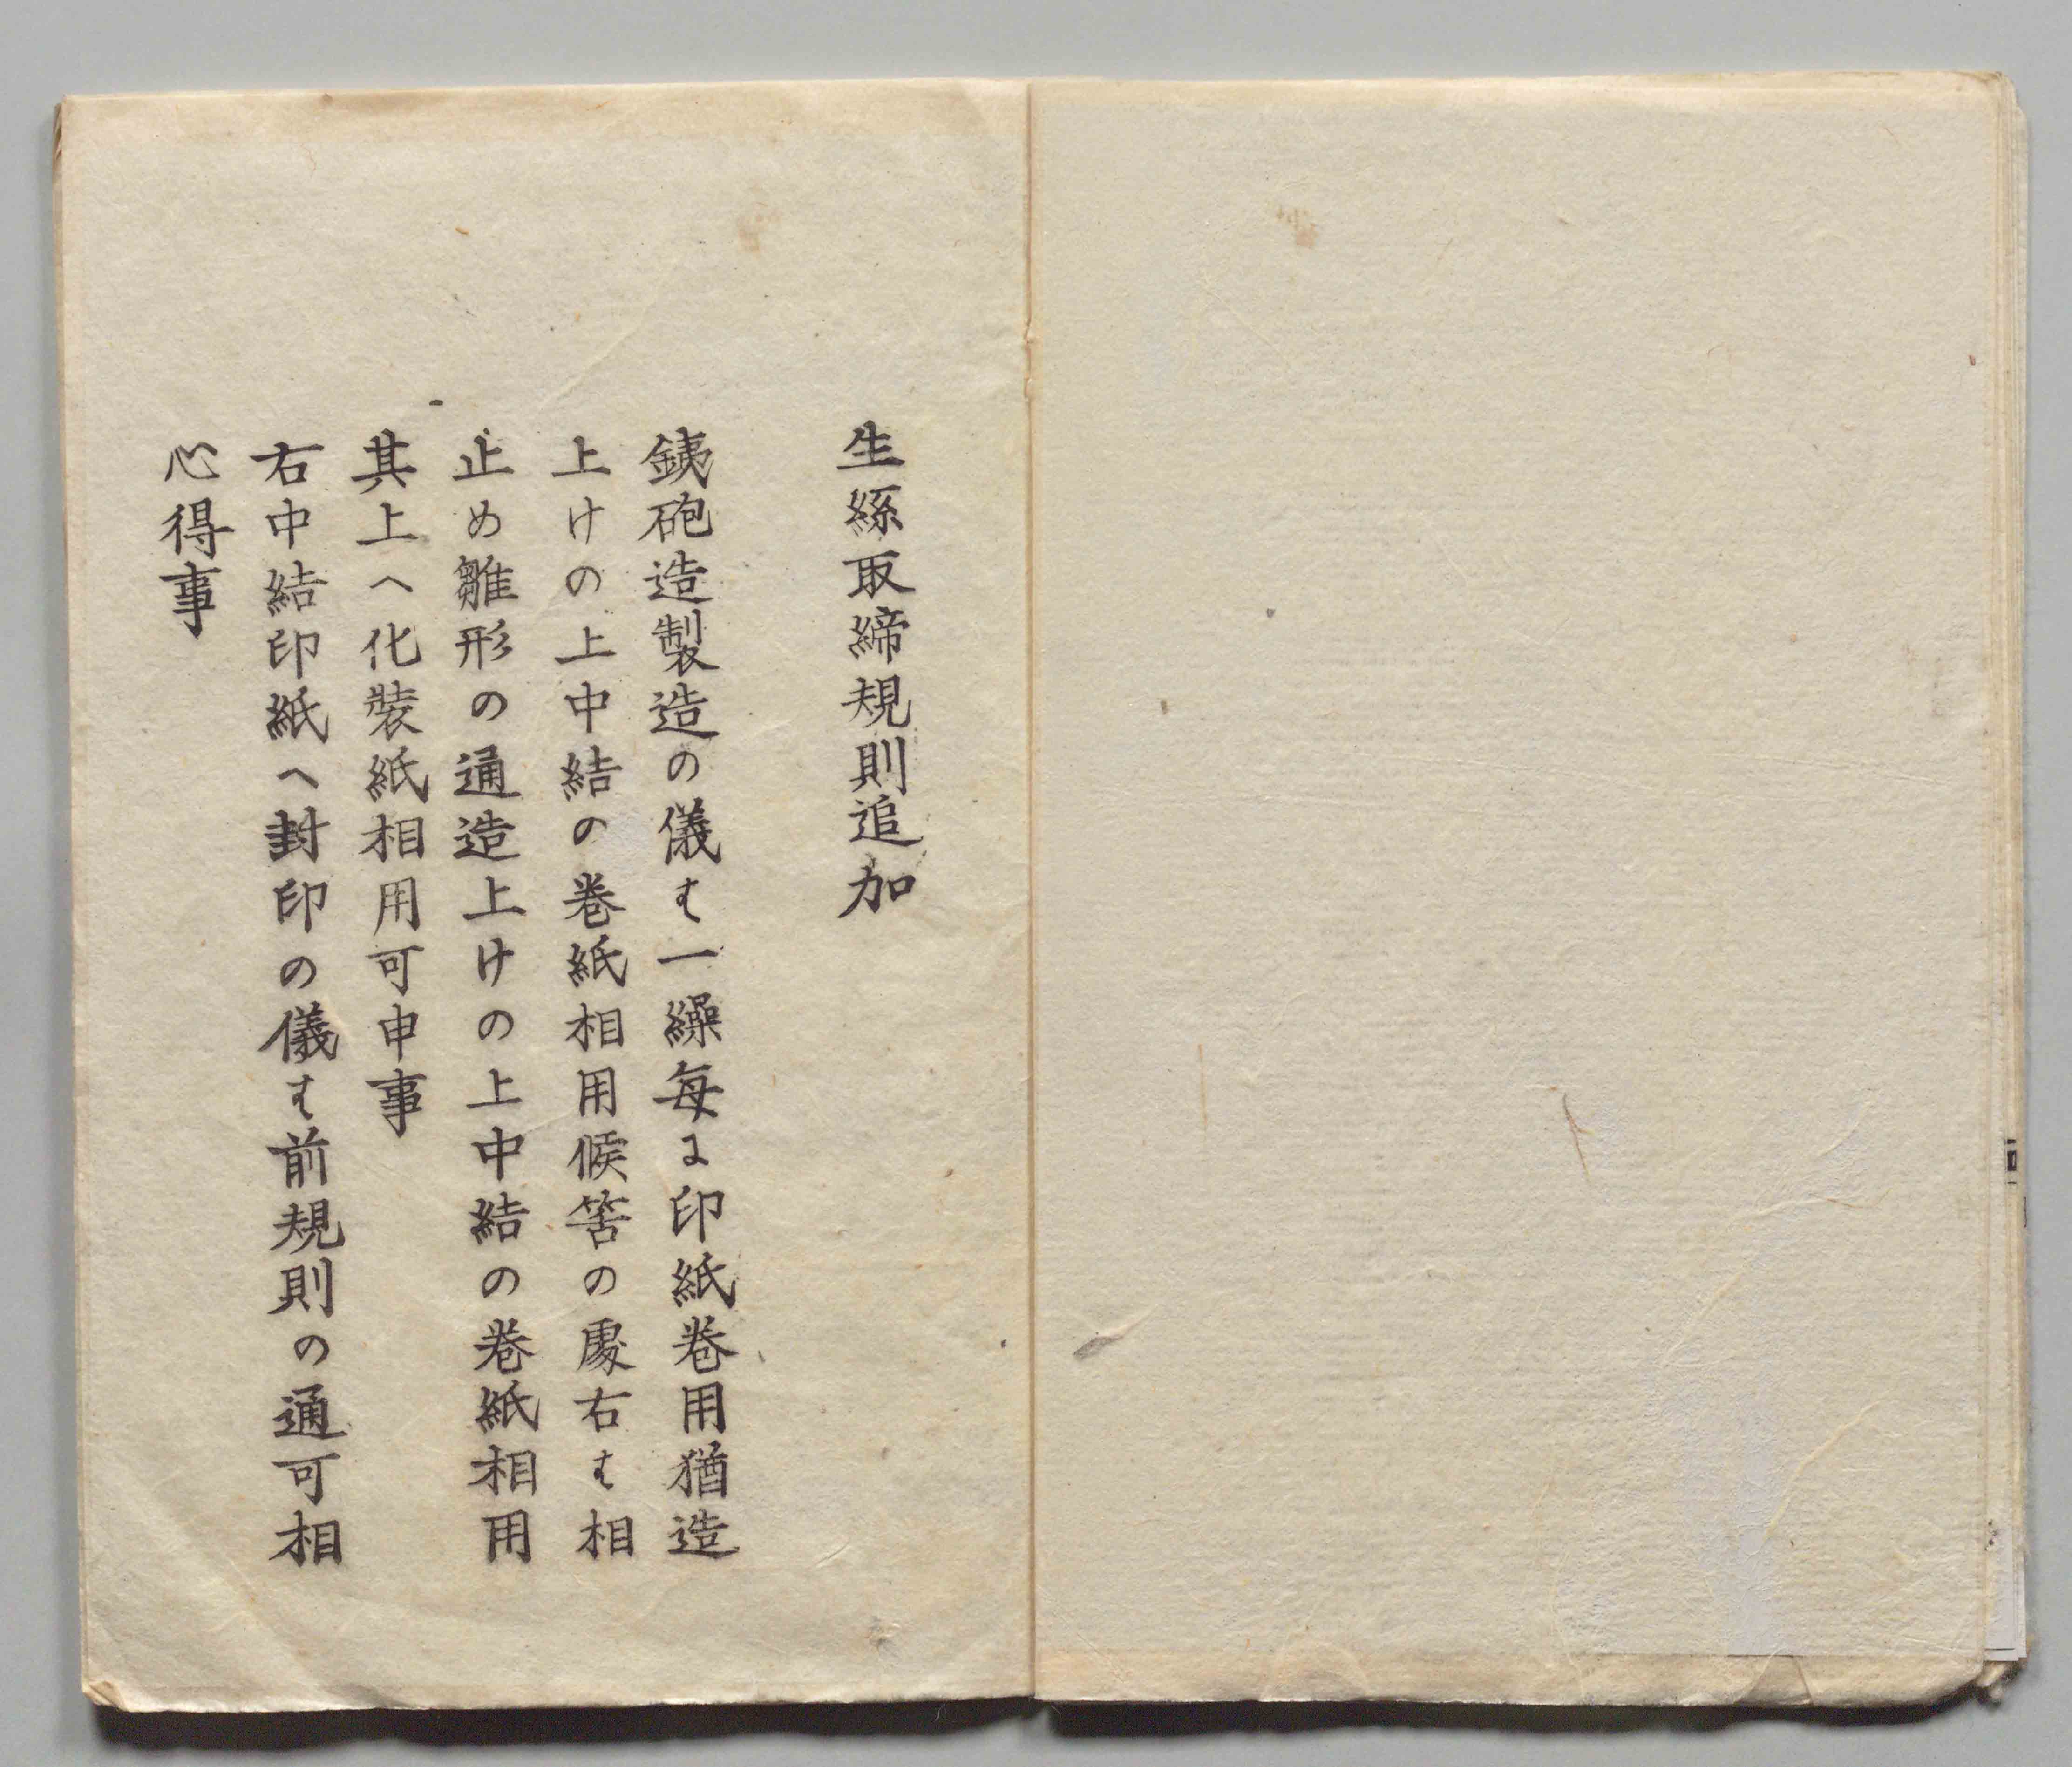 生絲取締規則追加
銕砲造製造の儀は一繰每に印紙卷用猶造
上けの上中結の卷紙相用候筈の處右は相
止め雛形の通造上けの上中結の卷紙相用
其上へ化裝紙相用可申事
右中結印紙へ封印の儀は前規則の通可相
心得事